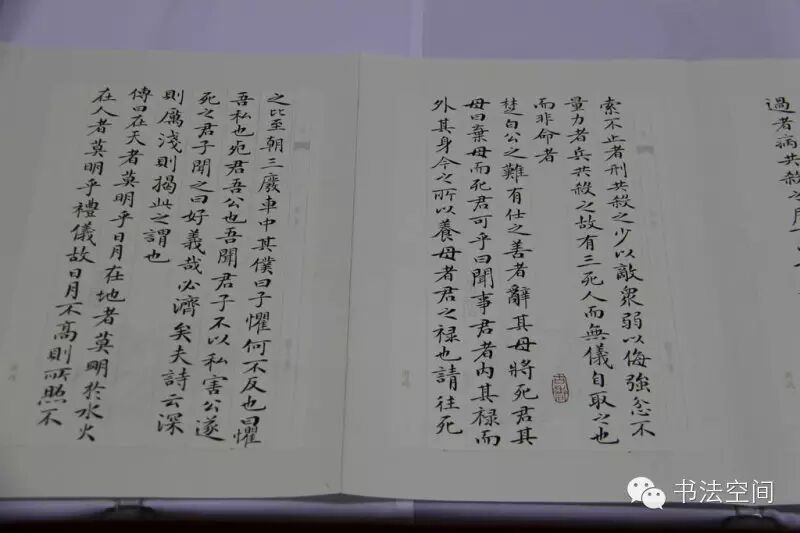 過者病共殺之
索不止者刑共殺之少以敵眾弱以侮強忿不
量力者兵共殺之故有三死人而無儀自取之也
而非命者
楚白公之難有仕之善者辭其母將死君其
母曰棄母而死君可乎曰聞事君者内其禄而
外其身今之所以養母者君之禄也請往死
之比至朝三廢車中其僕曰子懼何不反也曰懼
吾私也死君吾公也吾聞君子不以私害公遂
死之君子聞之曰好義哉必濟矣夫詩云深
則厲淺則揭此之謂也
傳曰在天者莫明乎日月在地者莫明於水火
在人者莫明乎禮儀故日月不高則所照不
书法空间